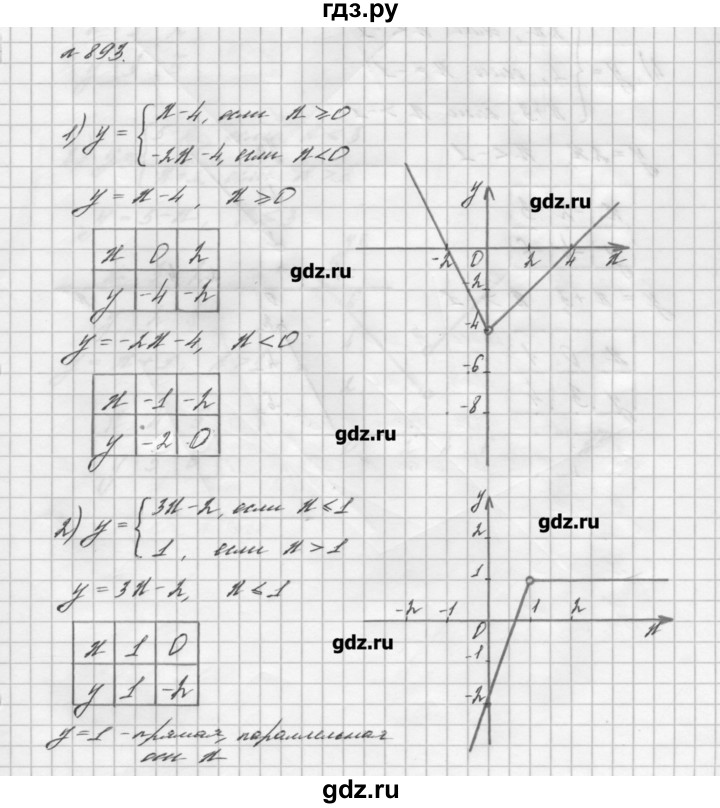 гдз.ру
№ 893.
1) y = { x-4, если x ≥ 0
-2x-4, если x < 0
y = x-4, x ≥ 0
x 0 2
y -4 -2
y = -2x-4, x < 0
x -1 -2
y -2 0
y
gdz.ru
gdz.ru
-2 0 2 4 x
-2
-4
-6
-8
gdz.ru
2) y = { 3x-2, если x ≤ 1
1, если x > 1
y = 3x-2, x ≤ 1
x 1 0
y 1 -2
y = 1 - прямая, параллельная
оси x
y
2
gdz.ru
1
-2 -1 0 1 2 x
-1
-2
gdz.ru
gdz.ru